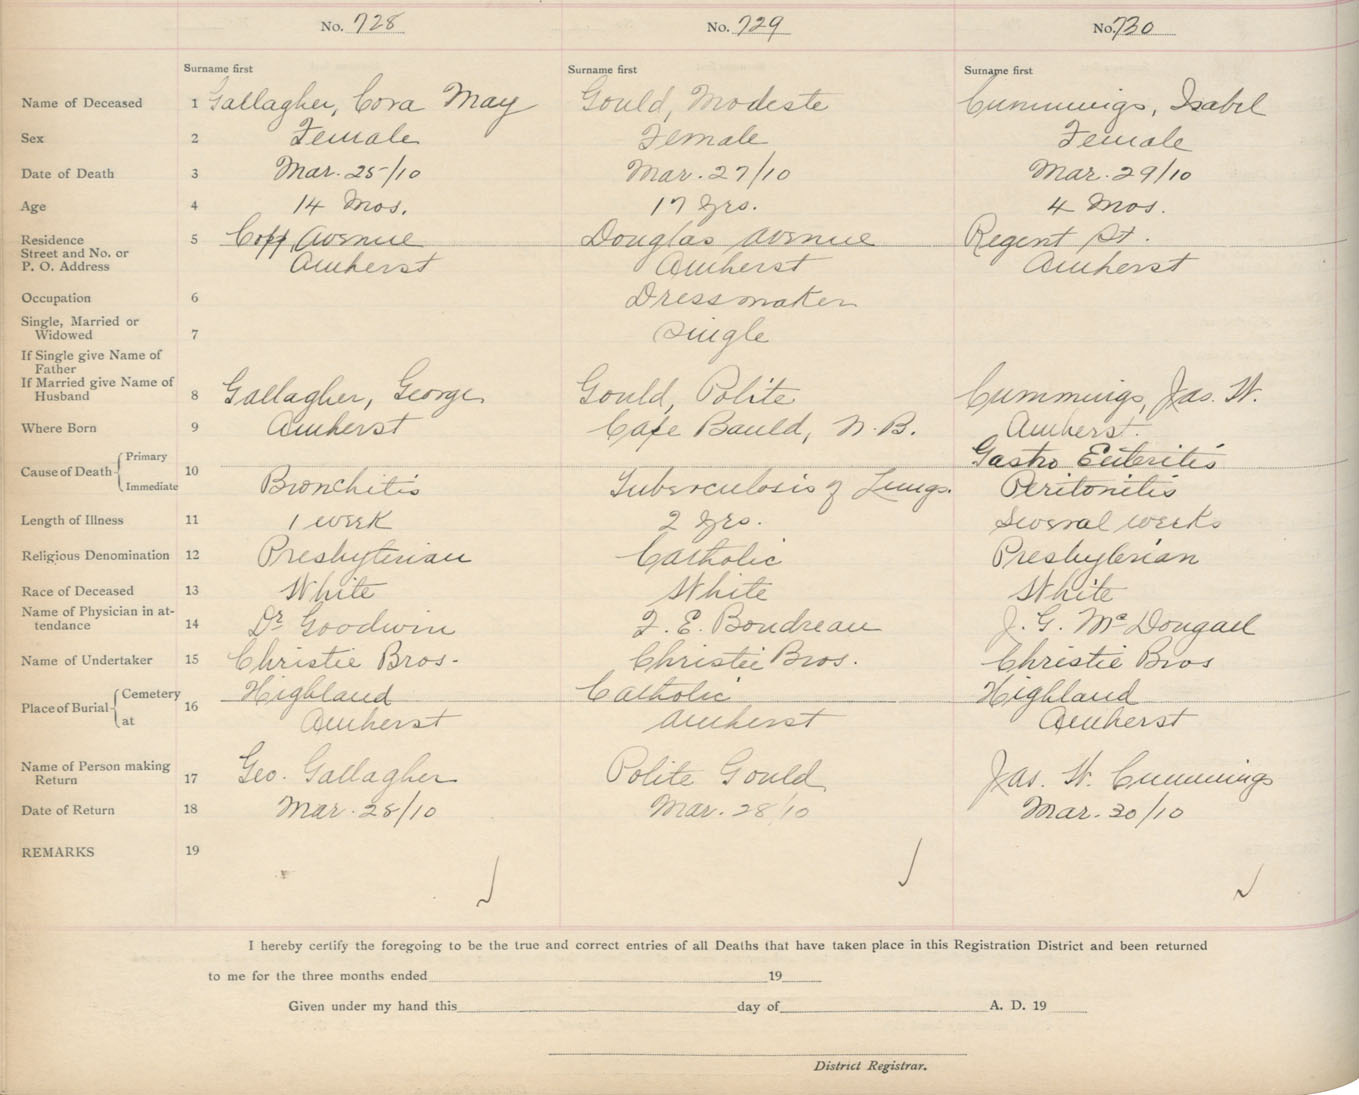 No. 728 No. 729 No. 730
Surname first Surname first Surname first
Name of Deceased 1 Gallagher, Cora May Gould, Modeste Cummings, Isabel
Sex 2 Female Female Female
Date of Death 3 Mar. 25/10 Mar. 27/10 Mar. 29/10
Age 4 14 Mos. 17 yrs. 4 Mos.
Residence 5 Copp Avenue Douglas Avenue Regent St.
Street and No. or
P. O. Address Amherst Amherst Amherst
Occupation 6 Dressmaker
Single, Married or
Widowed 7 Single
If Single give Name of
Father
If Married give Name of
Husband 8 Gallagher, George Gould, Polite Cummings, Jas. W.
Where Born 9 Amherst Cape Bauld, N.B. Amherst.
Cause of Death Primary 10 Gastro Enteritis
Immediate Bronchitis Tuberculosis of Lungs. Peritonitis
Length of Illness 11 1 week 2 yrs. Several weeks
Religious Denomination 12 Presbyterian Catholic Presbyterian
Race of Deceased 13 White White White
Name of Physician in at-
tendance 14 Dr Goodwin F. E. Boudreau J. G. McDougall
Name of Undertaker 15 Christie Bros. Christie Bros. Christie Bros
Place of Burial Cemetery 16 Highland Catholic Highland
at Amherst Amherst Amherst
Name of Person making
Return 17 Geo. Gallagher Polite Gould Jas. W. Cummings
Date of Return 18 Mar. 28/10 Mar. 28/10 Mar. 30/10
REMARKS 19
I hereby certify the foregoing to be the true and correct entries of all Deaths that have taken place in this Registration District and been returned
to me for the three months ended 19
Given under my hand this day of A. D. 19
District Registrar.